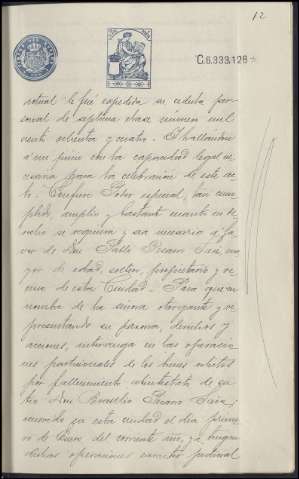 12
C.6.339.128
actual le fué expedida su cédula per-
sonal de séptima clase número mil
veinte ochenta y cuatro. Y hallándose
á mi juicio con la capacidad legal ne-
cesaria para la celebración de este ac-
to: Confiere Poder especial, tan cum-
plido, amplio y bastante cuanto en de-
recho se requiera y sea necesario á fa-
vor de Don Pablo Pizarro ma-
yor de edad, soltero, propietario y ve-
cino de esta Ciudad: Para que en
nombre de la señora otorgante y re-
presentando su persona, derechos y
acciones, intervenga en las operacio-
nes particionales de los bienes relictos
por fallecimiento abintestato de su
tío Don Braulio Pizarro
ocurrido en esta ciudad el día prime-
ro de Enero del corriente año, ya tengan
dichas operaciones carácter judicial